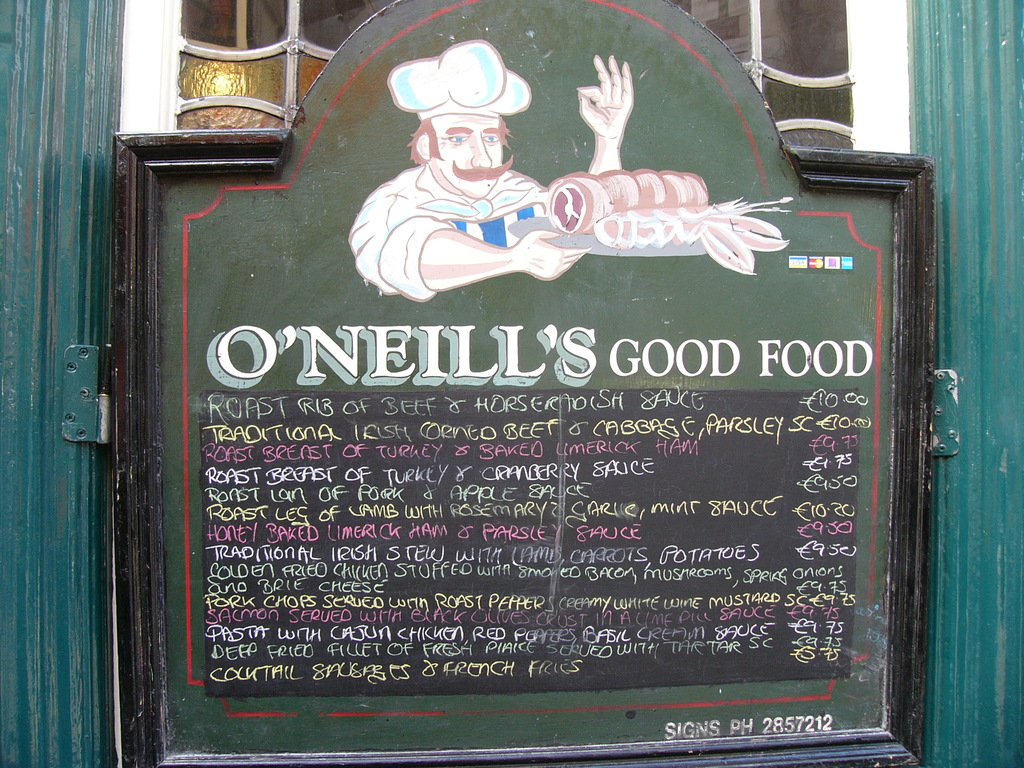 O'NEILL'S GOOD FOOD
ROAST RIB OF BEEF & HORSERADISH SAUCE €10.00
TRADITIONAL IRISH CORNED BEEF & CABBAGE, PARSLEY SC €10.00
ROAST BREAST OF TURKEY & BAKED LIMERICK HAM €9.75
ROAST BREAST OF TURKEY & CRANBERRY SAUCE €9.75
ROAST LOIN OF PORK & APPLE SAUCE €9.50
ROAST LEG OF LAMB WITH ROSEMARY & GARLIC, MINT SAUCE €10.20
HONEY BAKED LIMERICK HAM & PARSLEY SAUCE €9.50
TRADITIONAL IRISH STEW WITH LAMB, CARROTS, POTATOES €9.50
GOLDEN FRIED CHICKEN STUFFED WITH SMOKED BACON, MUSHROOMS, SPRING ONIONS
AND BRIE CHEESE €9.75
PORK CHOPS SERVED WITH ROAST PEPPER, CREAMY WHITE WINE MUSTARD SC €9.75
SALMON SERVED WITH BLACK OLIVES CRUST IN A LIME DILL SAUCE €9.75
PASTA WITH CAJUN CHICKEN, RED PEPPERS, BASIL CREAM SAUCE €9.75
DEEP FRIED FILLET OF FRESH PLAICE SERVED WITH TARTAR SC €9.75
COCKTAIL SAUSAGES & FRENCH FRIES
SIGNS PH 2857212